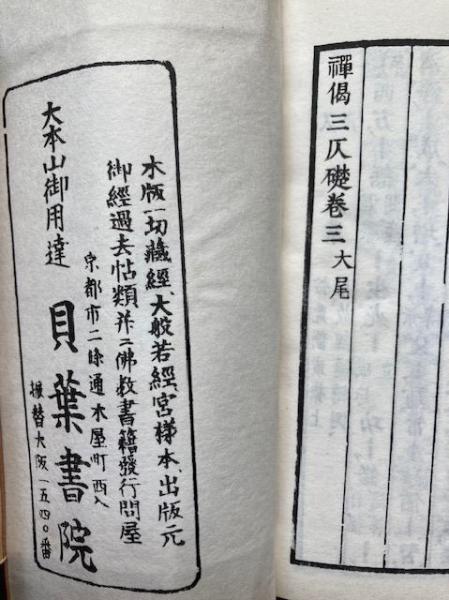 禪偈三仄礎卷三大尾
木版一切藏經、大般若經宮樣本、出版元
御經過去帖類并ニ佛教書籍發行問屋
京都市二條通木屋町西入
大本山御用達 貝葉書院
振替大阪一五四〇番